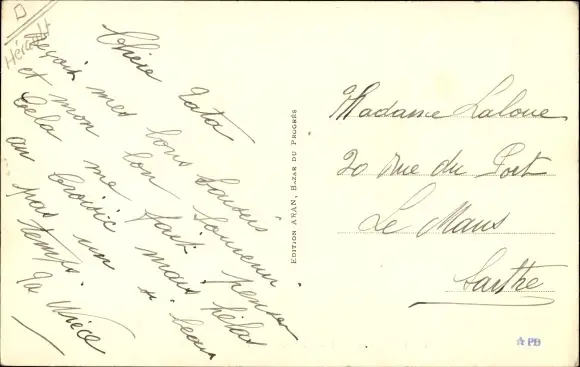 Hérault
Chère Tata
Reçois mes bons baisers
et mon bon souvenir
Cela me fait penser
au Croisic mais hélas
pas un si beau
temps.
Ta Nièce
EDITION ARAN, BAZAR DU PROGRÈS
Madame Laloue
20 Rue du Port
Le Mans
Sarthe
PB